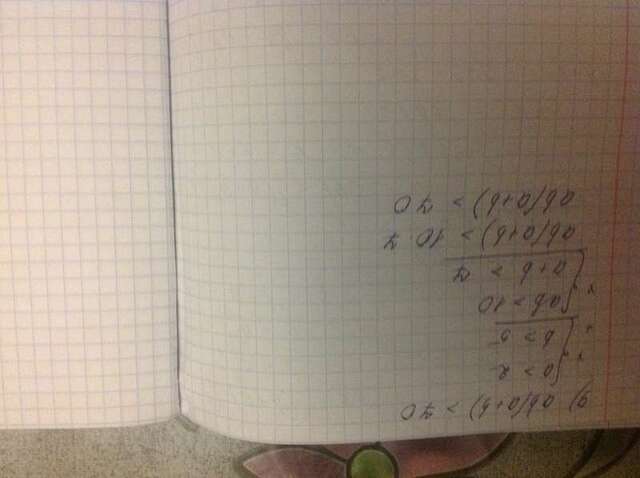 д) ab(a+b) > 70
+ × { a > 2
+ { b > 5
× { ab > 10
{ a+b > 7
ab(a+b) > 10·7
ab(a+b) > 70